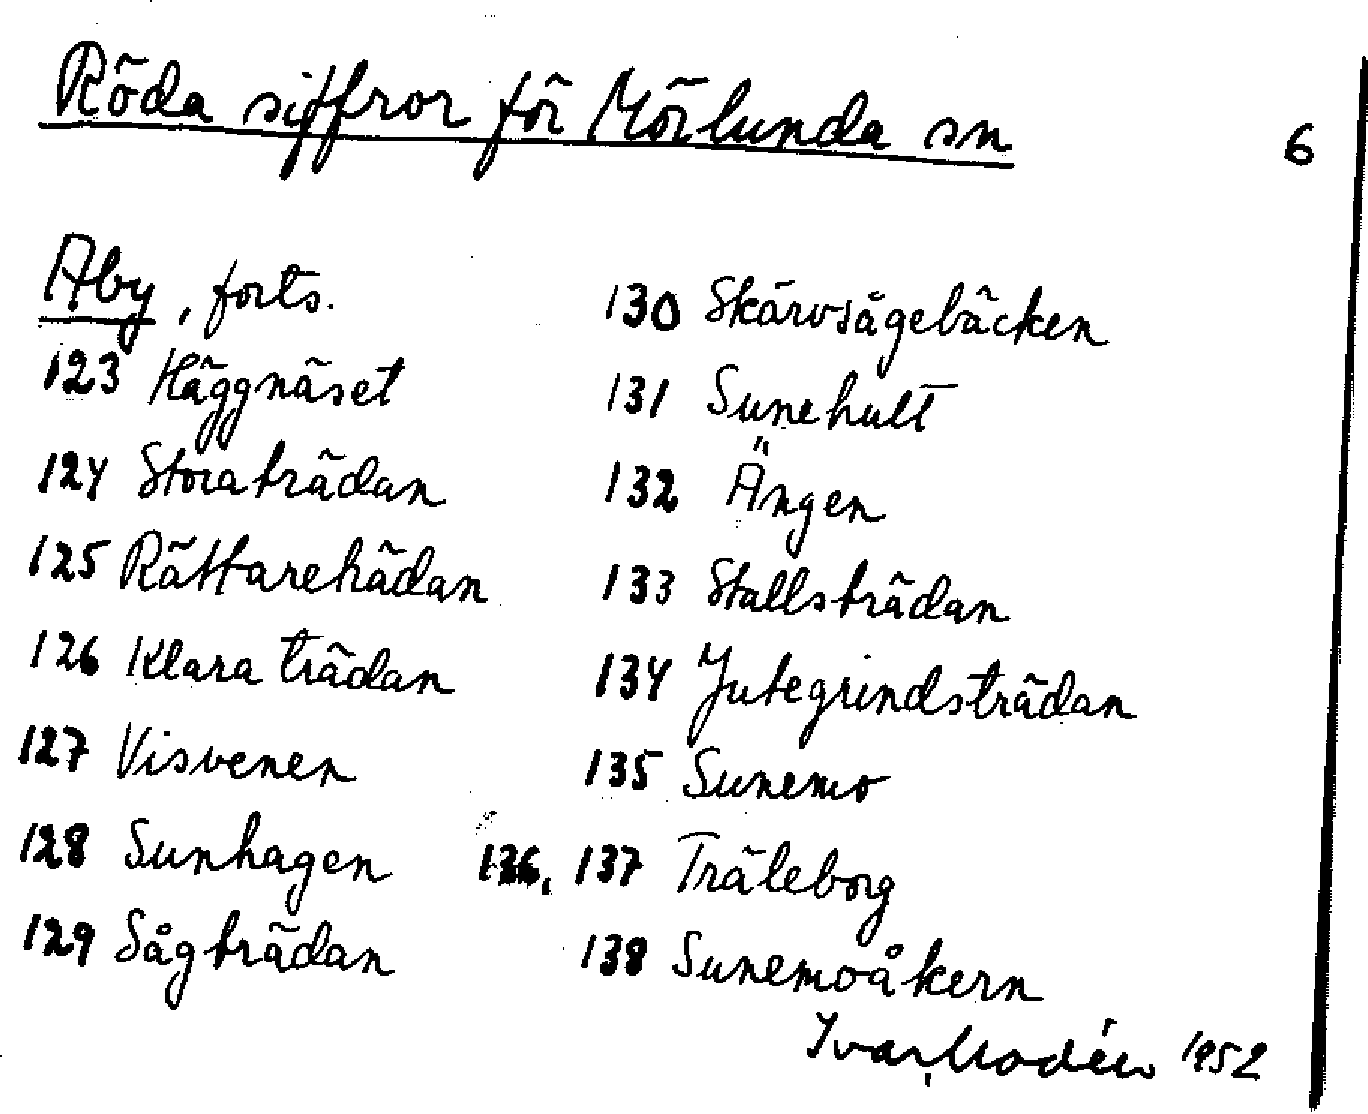 Röda siffror för Mörlunda sn
6
Åby, forts.
123 Häggnäset
124 Storaträdan
125 Rättareträdan
126 Klara trädan
127 Visvenen
128 Sunhagen
129 Sågträdan
130 Skärvsågebäcken
131 Sunehult
132 Ängen
133 Stallsträdan
134 Jutegrindsträdan
135 Sunemo
136, 137 Träleborg
138 Sunemoåkern
Ivar Modéer 1952